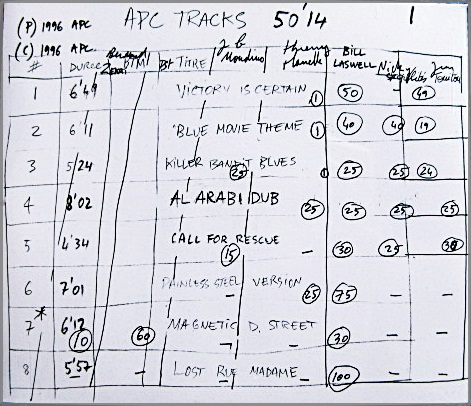 (P) 1996 APC APC TRACKS 50'14 1
(C) 1996 APC.
# DUREE BIM TITRE J B Mondino Thierry BILL LASWELL
1 6'49 VICTORY IS CERTAIN 1 50 – 49
2 6'11 'BLUE MOVIE THEME 1 40 40 19
3 5/24 KILLER BANDIT BLUES 25 1 25 25 24
4 8'02 AL ARABI DUB 25 25 25 25
5 4'34 CALL FOR RESCUE 15 – 30 25 30
6 7'01 PAINLESS STEEL VERSION – 25 75 – –
7* 6'12 10 60 MAGNETIC D. STREET – – 30 – –
8 5'57 – LOST RUE MADAME – 100 – –